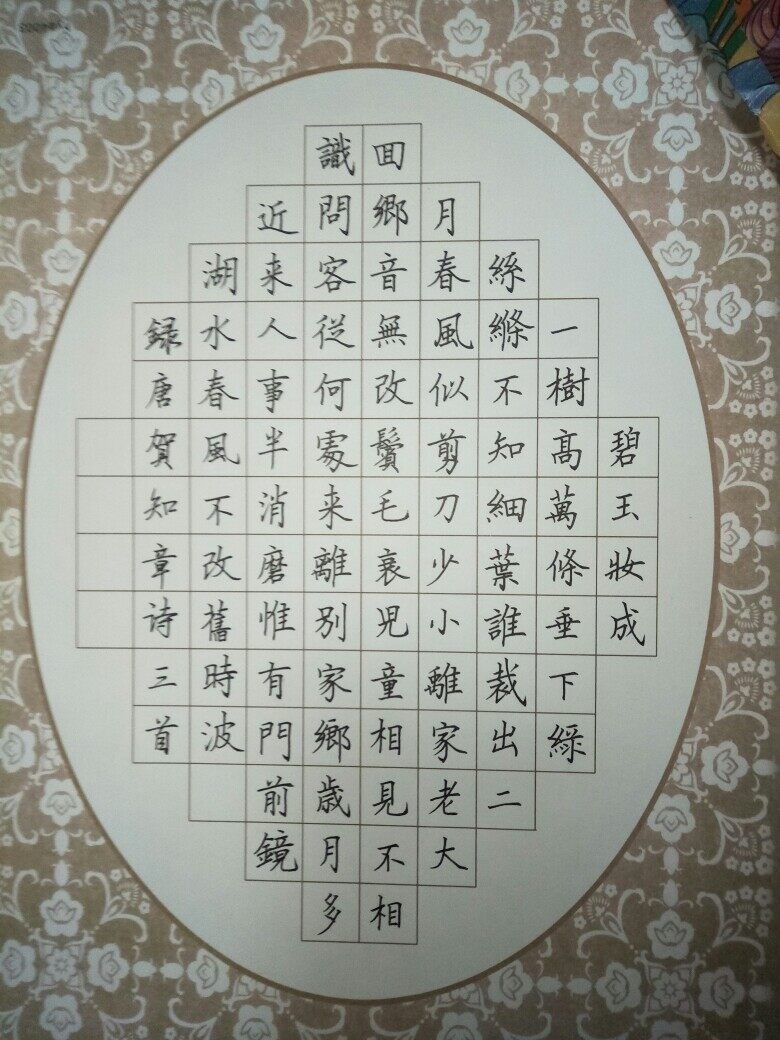 碧玉妝成
一樹高萬條垂下綠
絲縧不知細葉誰裁出二
月春風似剪刀少小離家老大
囬鄉音無改鬢毛衰児童相見不相
識問客從何處来離別家鄉歲月多
近来人事半消磨惟有門前鏡
湖水春風不改舊時波
録唐賀知章诗三首